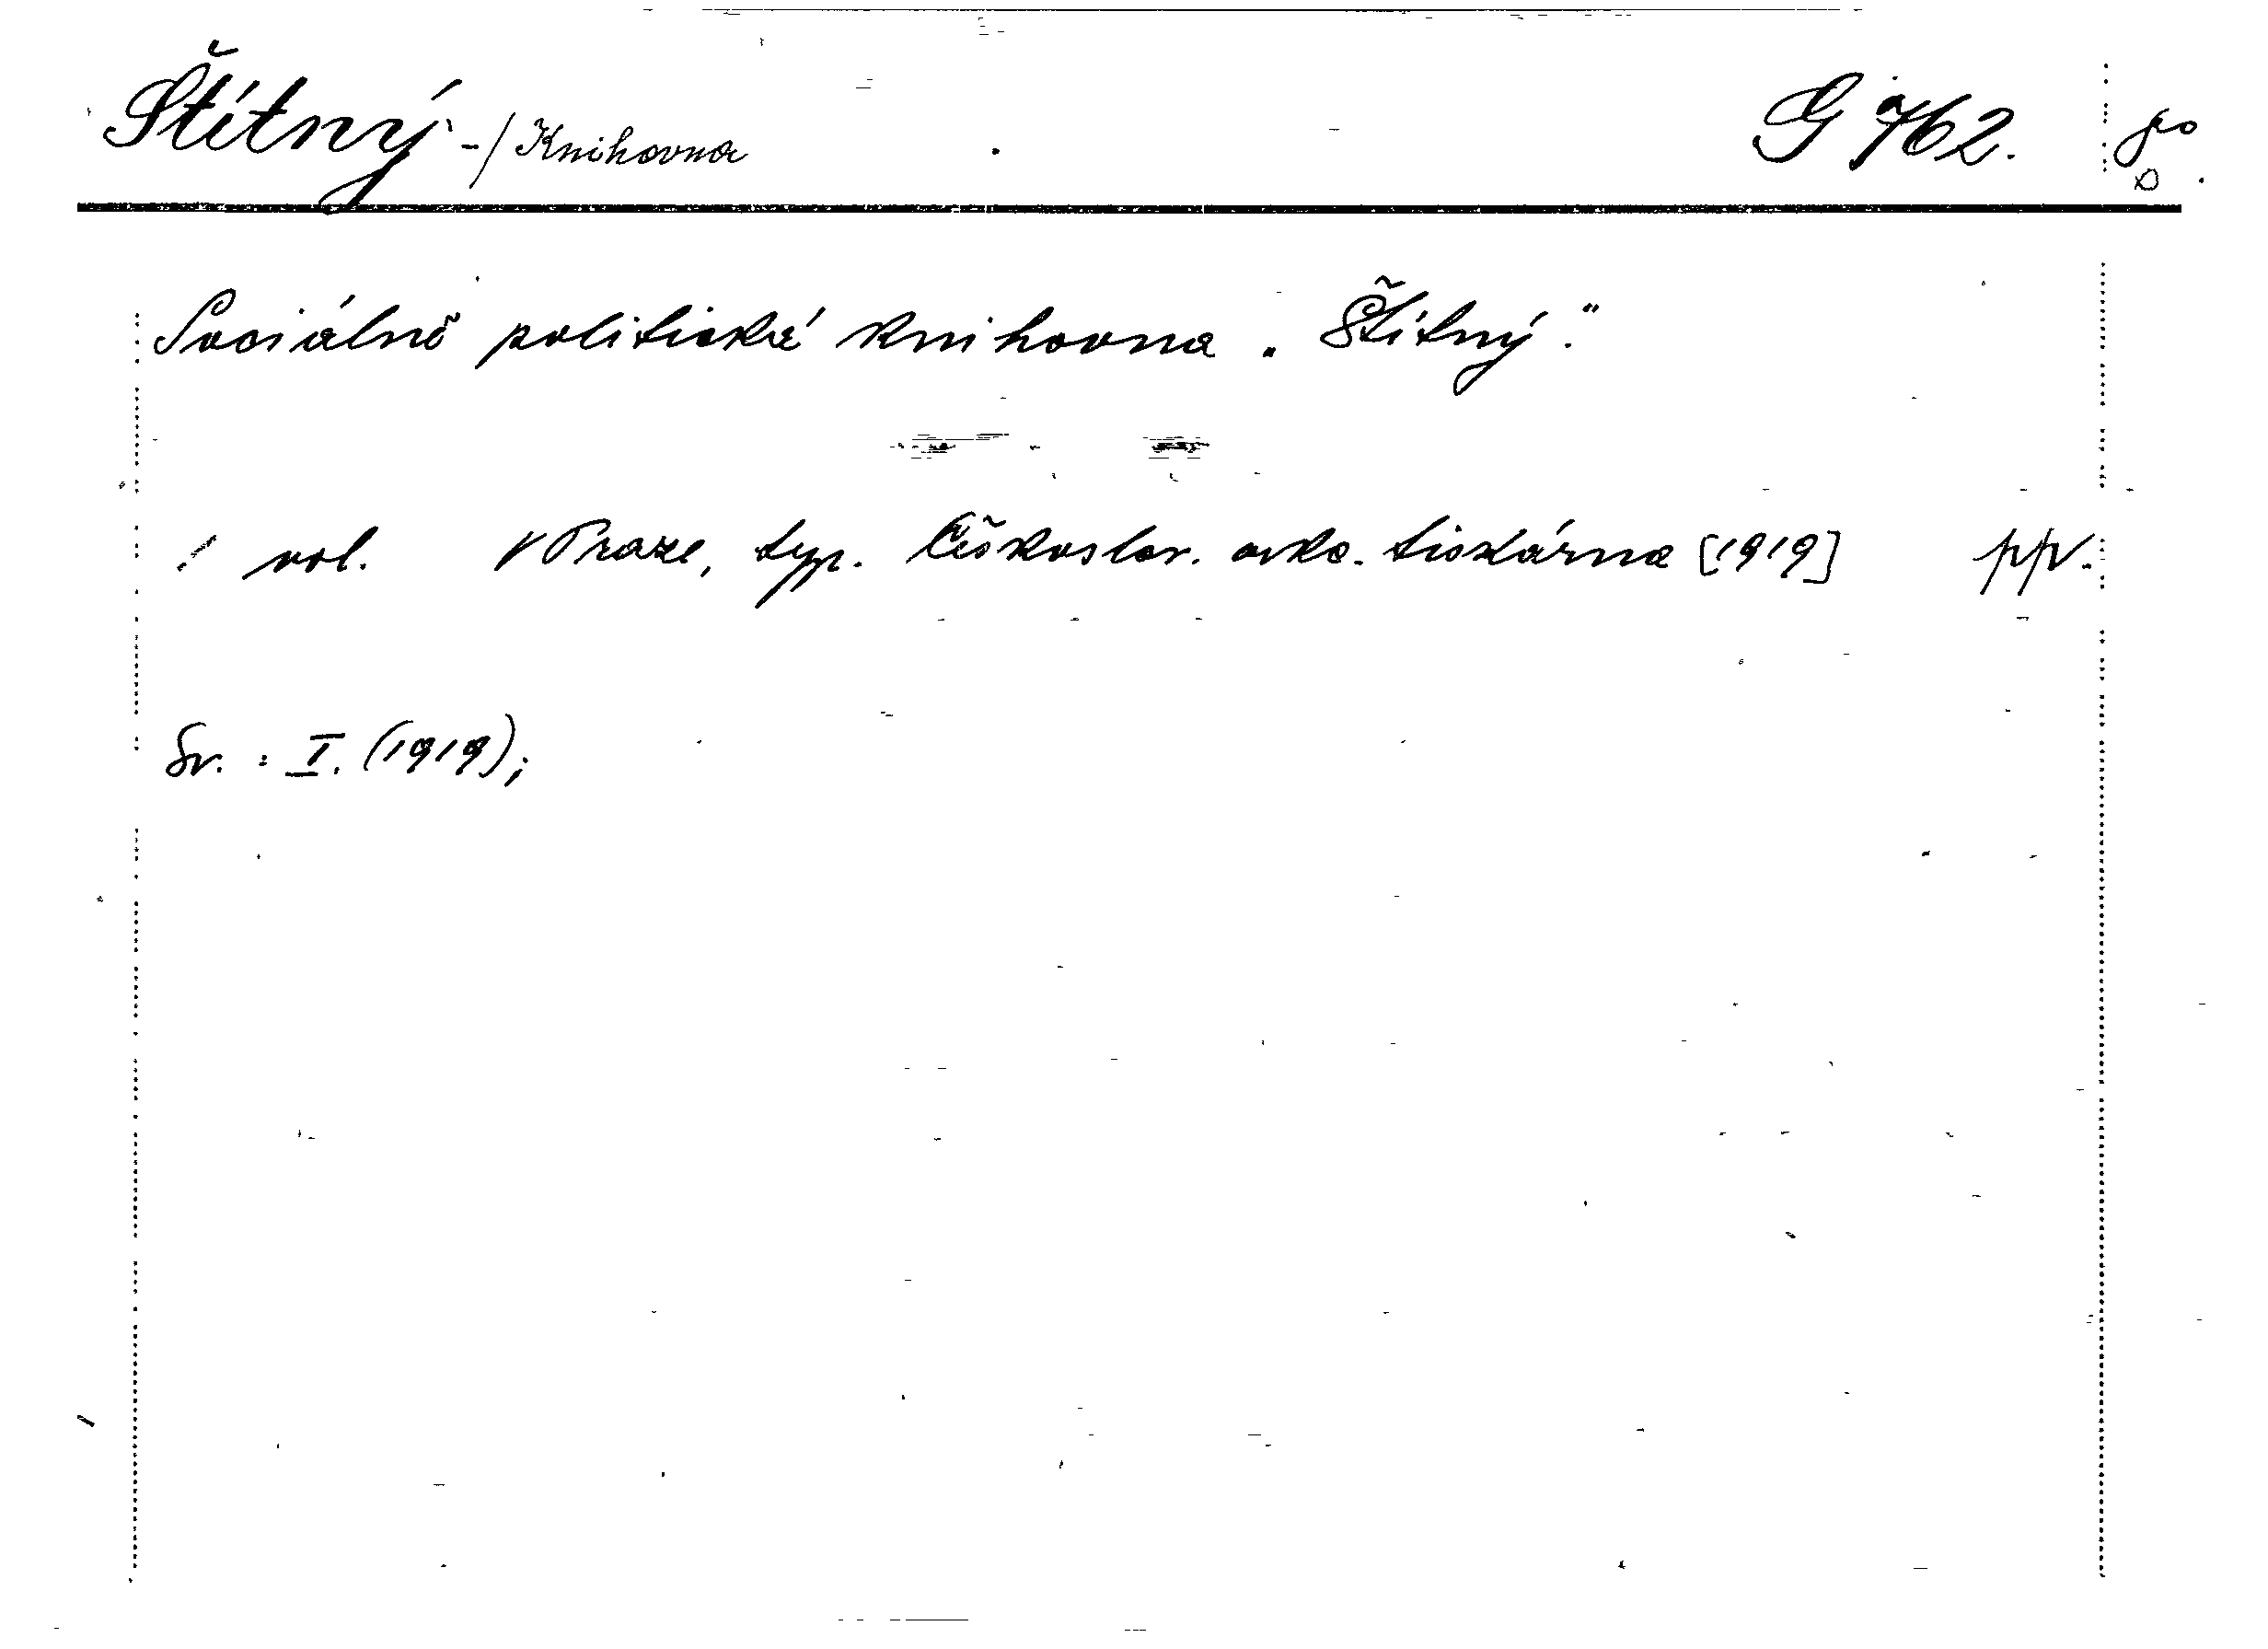 Štítný -/ Knihovna G 762.
Sociálně politická knihovna „Štítný."
1 vol. V Praze, typ. Českoslov. akc. tiskárna [1919] pp.
Sv. : I. (1919);